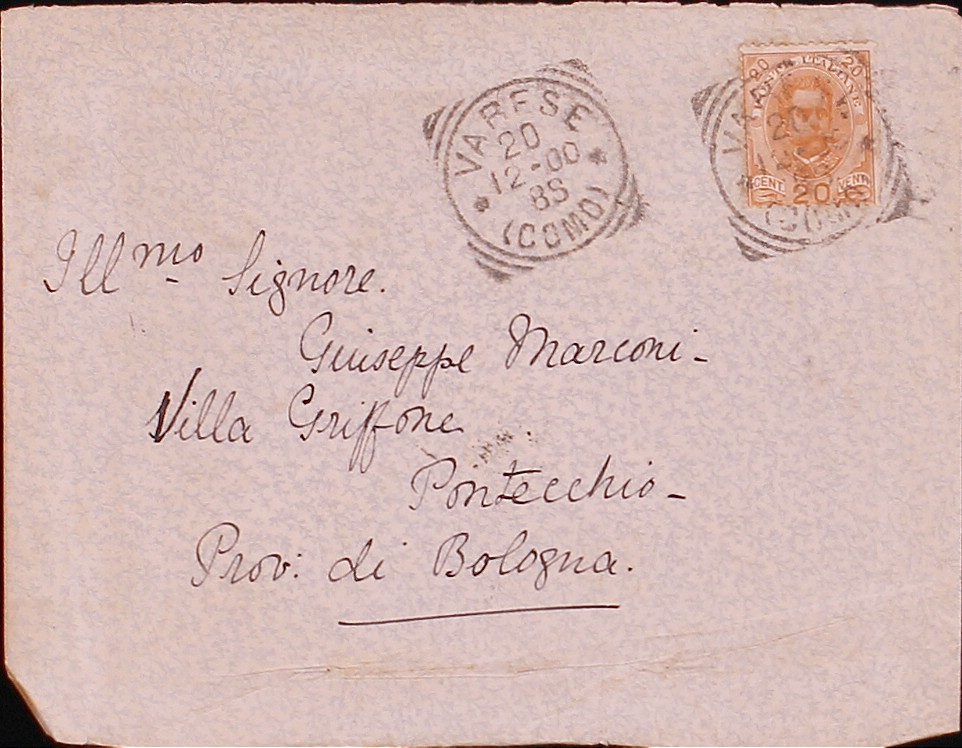 VARESE
20
12-00
8S
(COMO)
20 20
POSTE ITALIANE
CENT. 20 VENTI
Ill mo Signore.
Giuseppe Marconi-
Villa Griffone
Pontecchio-
Prov: di Bologna.